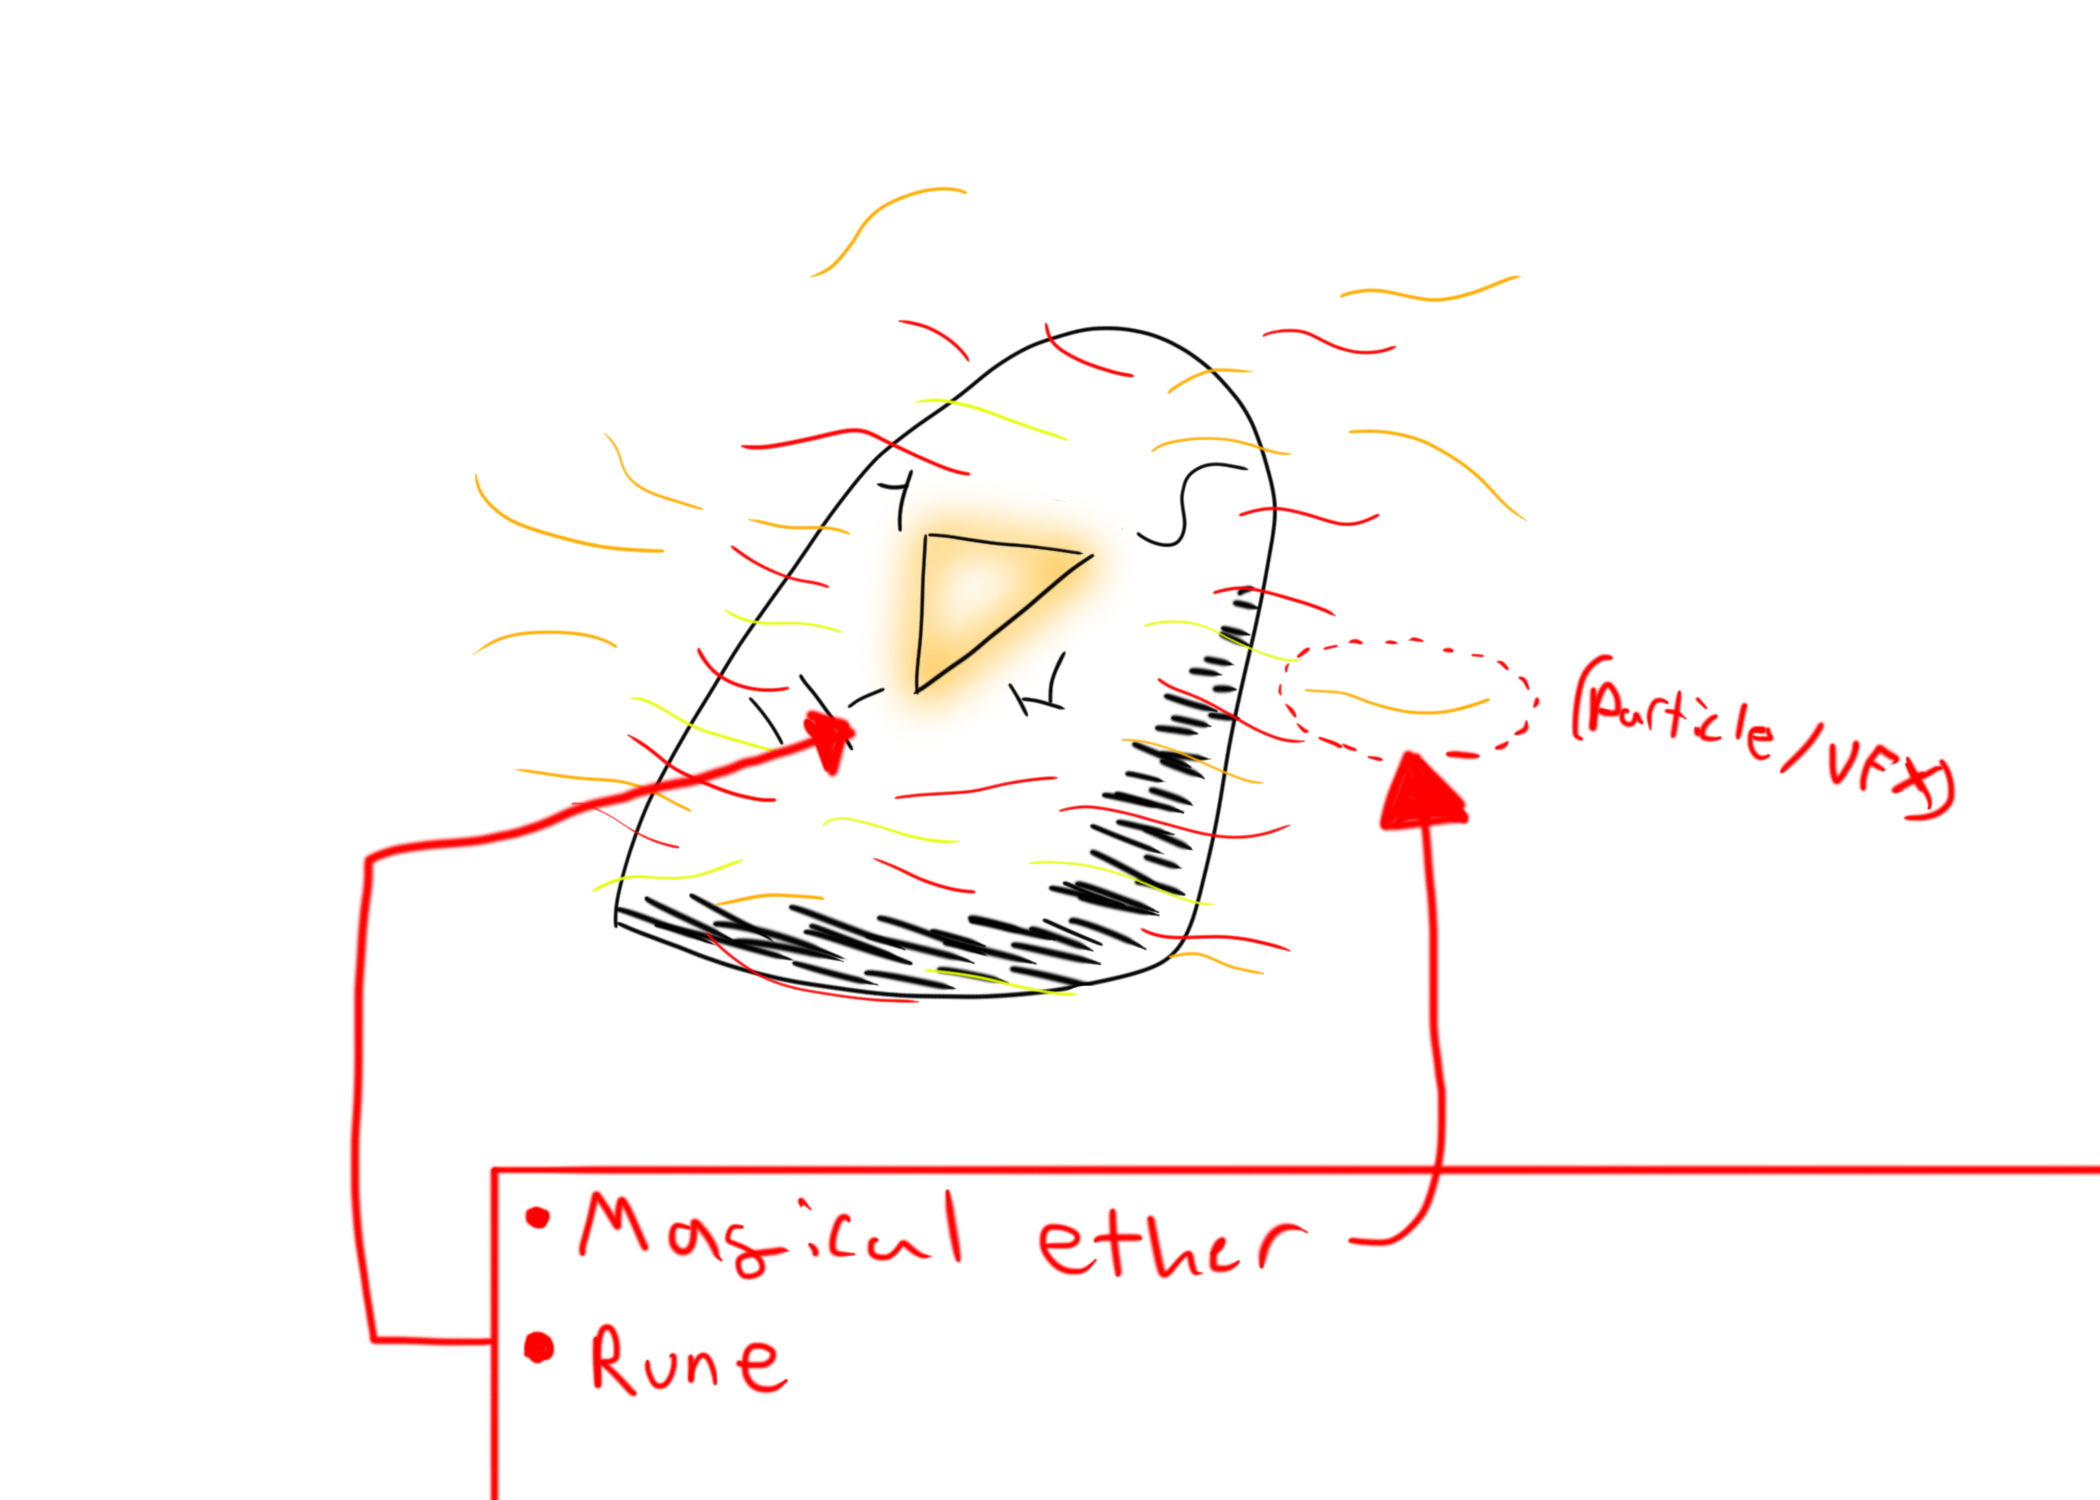 (Particle/VFX)
• Magical ether
• Rune